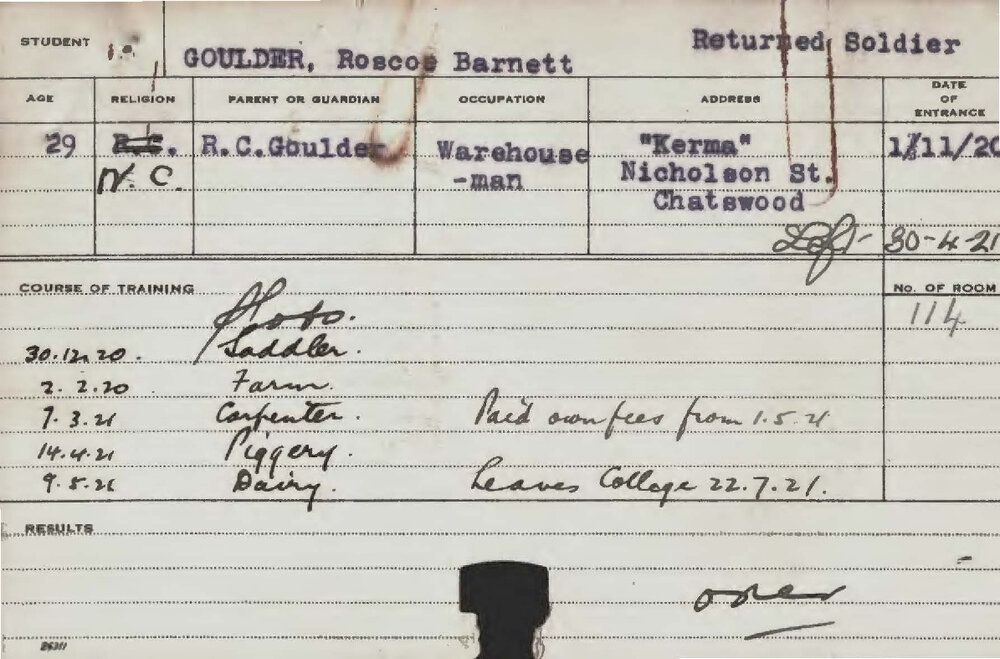 STUDENT
GOULDER, Roscoe Barnett
Returned Soldier
AGE
RELIGION
PARENT OR GUARDIAN
OCCUPATION
ADDRESS
DATE
OF
ENTRANCE
29
R.C.
R.C.Goulder
Warehouse
-man
"Kerma"
Nicholson St.
Chatswood
11/20
N. C.
Left- 30-4-21
COURSE OF TRAINING
No. OF ROOM
114
30.12.20. Saddler.
2.2.20 Farm.
7.3.21 Carpenter. Paid own fees from 1.5.21
14.4.21 Piggery.
9.5.21 Dairy. Leaves College 22.7.21.
RESULTS
over